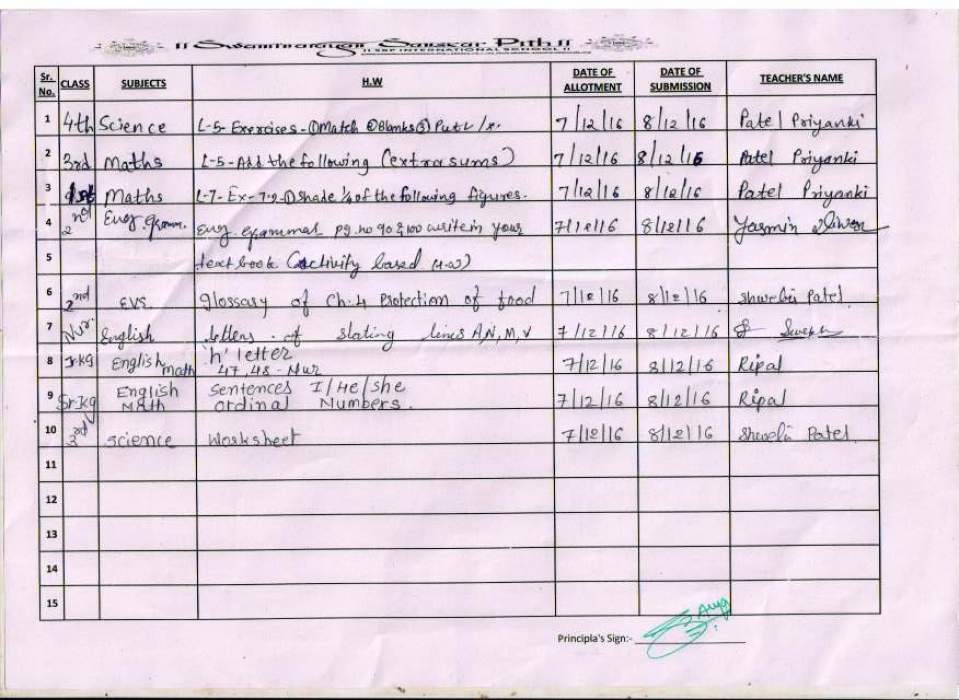 || Swaminarayan Sanskar Pith ||
|| SSP INTERNATIONAL SCHOOL ||
Sr. No. CLASS SUBJECTS H.W DATE OF ALLOTMENT DATE OF SUBMISSION TEACHER'S NAME
1 4th Science L-5- Exercises - ① Match ② Blanks ③ Put ✓/x. 7/12/16 8/12/16 Patel Priyanki
2 3rd Maths L-5- Add the following (extra sums) 7/12/16 8/12/16 Patel Priyanki
3 1st Maths L-7- Ex- 7.2 ① Shade 1/4 of the following figures. 7/12/16 8/12/16 Patel Priyanki
4 2nd Eng. Gramm. Eng. grammar pg. no 90 & 100 write in your 7/12/16 8/12/16 Yasmin
5 text book (activity based H.W)
6 2nd EVS Glossary of Ch:4 Protection of food 7/12/16 8/12/16 Shweta Patel
7 Nur. English letters of slating lines A, N, M, V 7/12/16 8/12/16
8 Jr kg English 'h' letter
Math 47, 48 - Nur 7/12/16 8/12/16 Ripal
9 Sr. Kg English Sentences I/He/She
Math Ordinal Numbers. 7/12/16 8/12/16 Ripal
10 3rd Science Worksheet 7/12/16 8/12/16 Shweta Patel
11
12
13
14
15
Principla's Sign:-